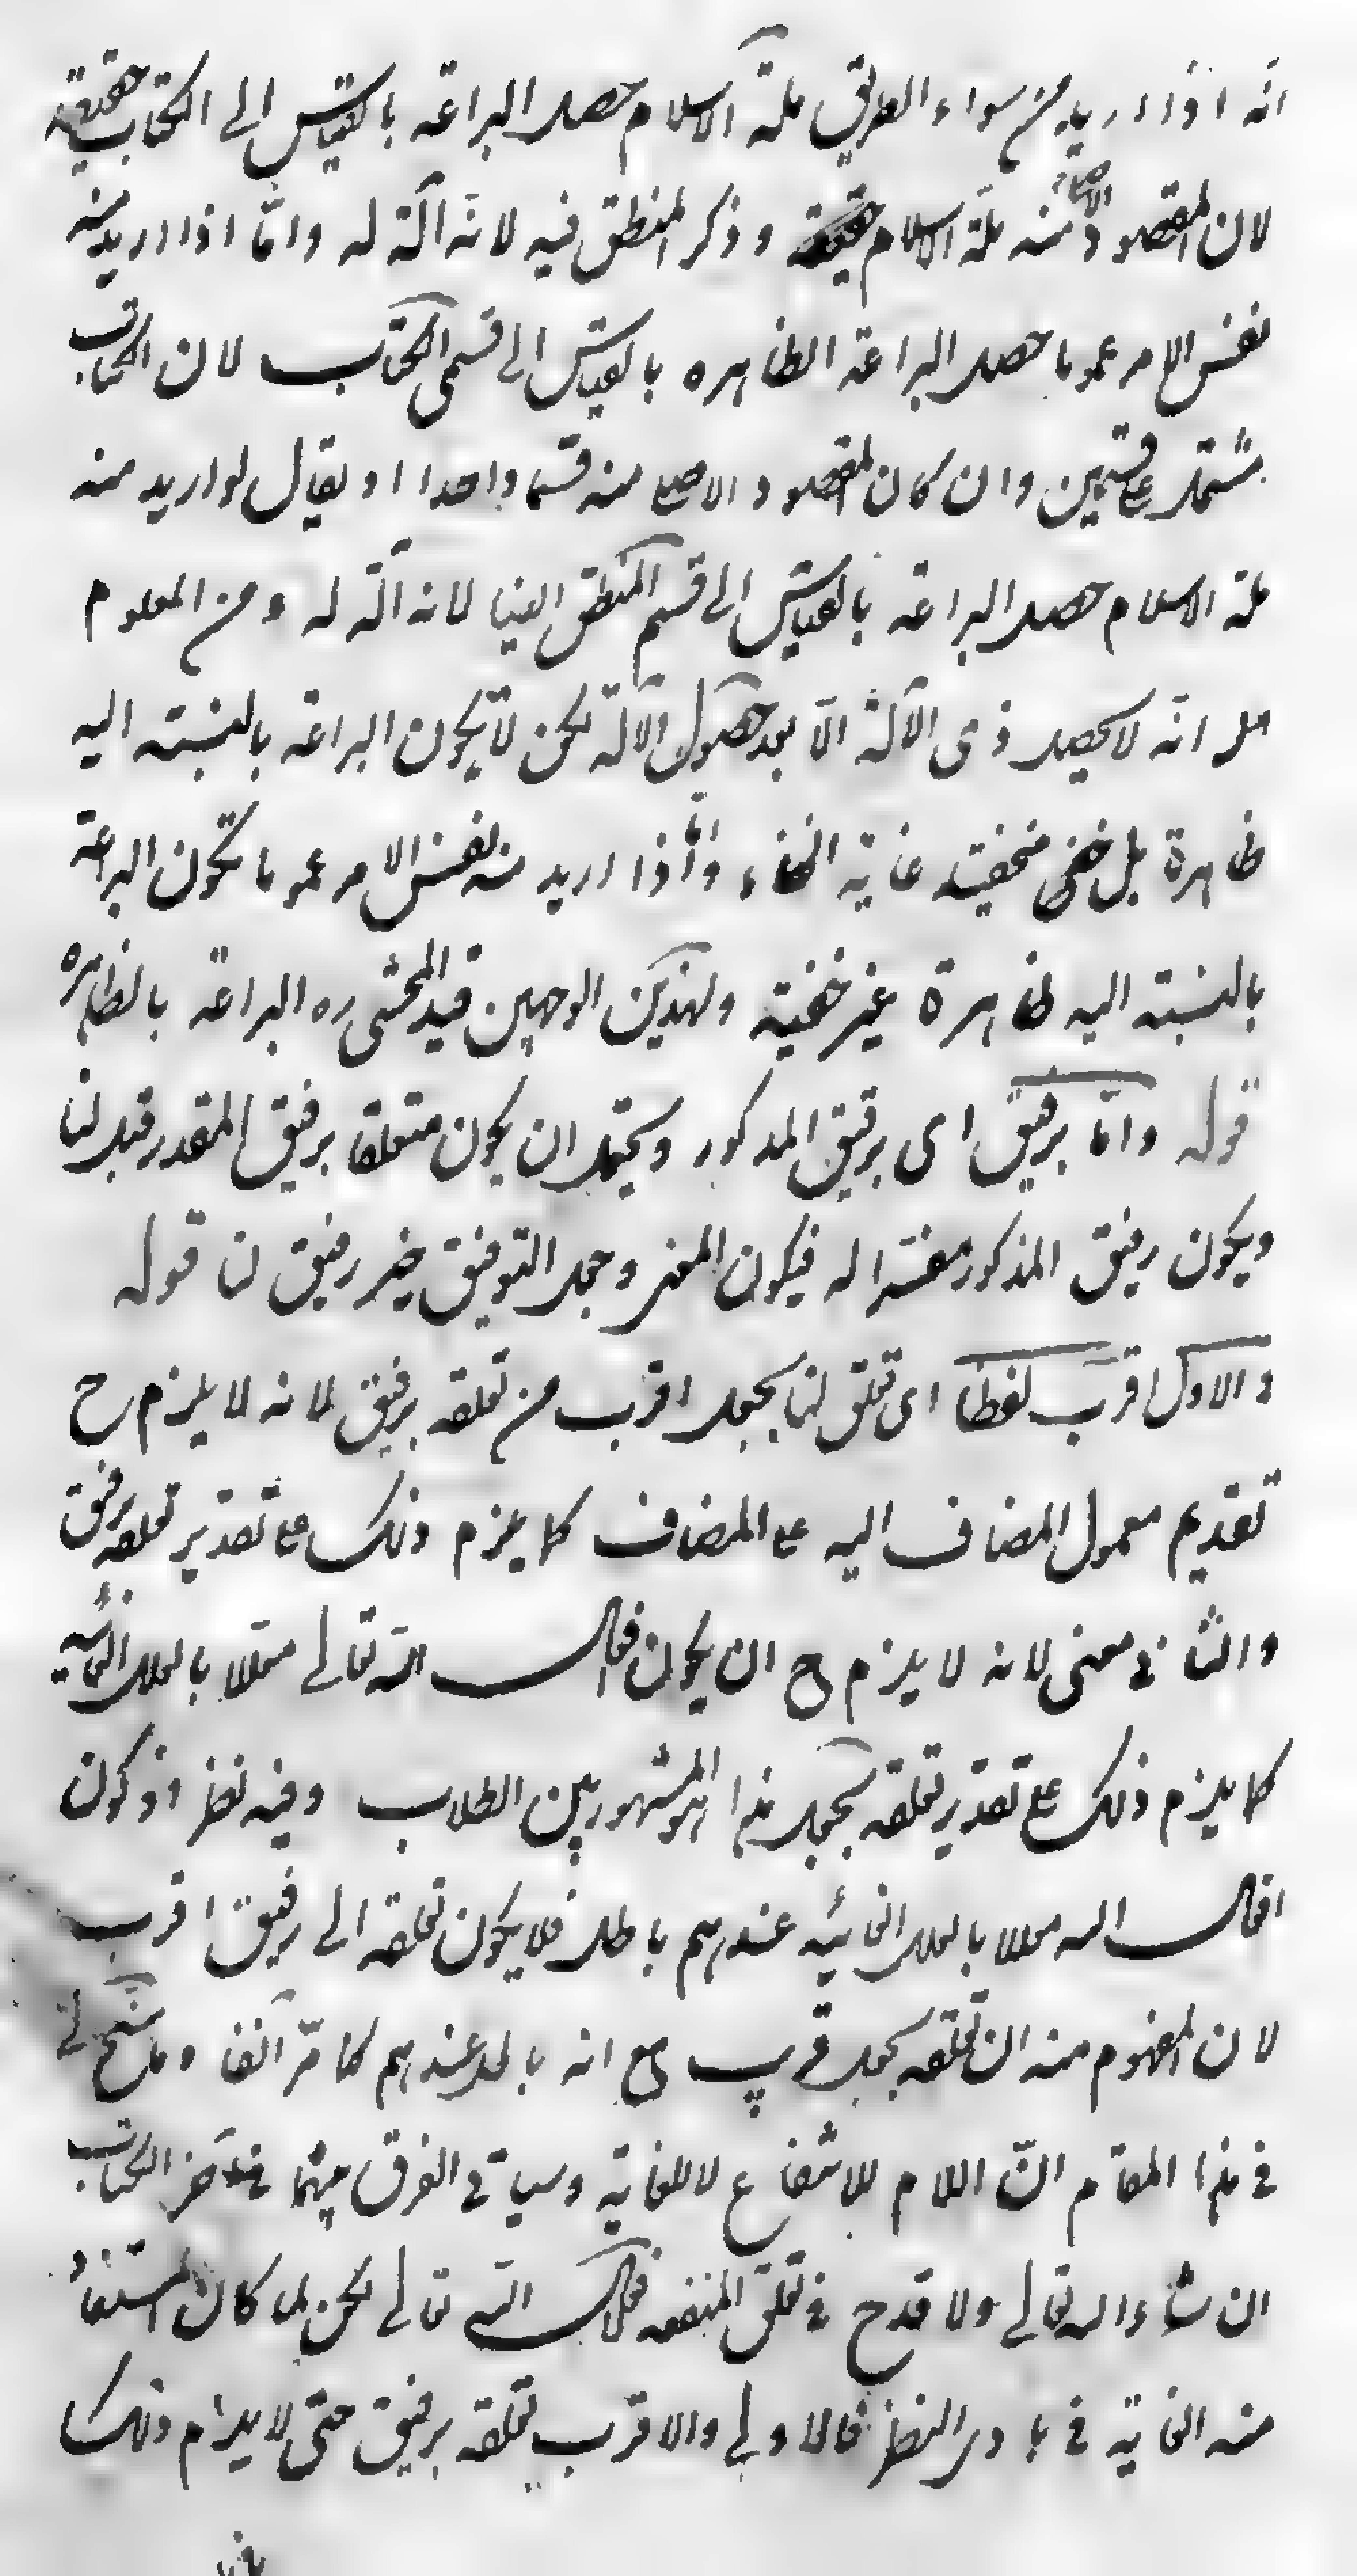 انه اذا اريد من سواء الطريق ملة الاسلام حصل البراعة بالقياس الى الكتاب حقيقة
لان المقصود الاصلى منه ملة الاسلام حقيقة و ذكر المنطق فيه لانه آلة له و امّا اذا اريد منه
نفس الامر عموما حصل البراعة الظاهره بالقياس الى قسمى الكتاب لان الكتاب
مشتمل على قسمين و ان كان المقصود الاصلى منه قسما واحدا او يقال لو اريد منه
ملة الاسلام حصل البراعة بالقياس الى قسم المنطق ايضا لانه آلة له و من المعلوم
انه لا يحصل ذى الآلة الّا بعد حصول الآلة لكن لا يكون البراعة بالنسبته اليه
ظاهرة بل خفى مخفيته غاية الخفاء و اذا اريد منه نفس الامر عموما تكون البراعة
بالنسبته اليه ظاهرة غير خفية ولهذين الوجهين قيد المحشى ره البراعة بالظاهره
قوله و امّا برفيق اى برفيق المذكور و يحتمل ان يكون متعلقا برفيق المقدر قبل لنا
و يكون رفيق المذكور مفسرا له فيكون المعنى و جعل التوفيق خير رفيق لنا قوله
و الاول اقرب لفظا اى تعلق لنا بجعل اقرب من تعلقه برفيق لانه لا يلزم ح
تقديم معمول المضاف اليه على المضاف كما يلزم ذلك على تقدير تعلقه برفيق
و الثانى معنى لانه لا يلزم ح ان يكون افعال الله تعالى معللا بالعلل الغائيه
كما يلزم ذلك على تقدير تعلقه بجعل هذا هو المشهور بين الطلاب و فيه نظر اذ كون
افعال الله معللا بالعلل الغائيه عندهم باطل فلا يكون تعلقه الى رفيق اقرب
لان المفهوم منه ان تعلقه بجعل قريب مع انه باطل عندهم كما مرّ آنفا و ما سنح لى
فى هذا المقام انّ اللام للانتفاع لا للغاية و سياتى الفرق بينهما فى آخر الكتاب
ان شاء الله تعالى و لا قدح فى تعلق المنفعة فعل الله تعالى لكن لما كان المستفاد
منه الغاية فى بادى النظر فالاولى و الاقرب تعلقه برفيق حتى لا يلزم ذلك